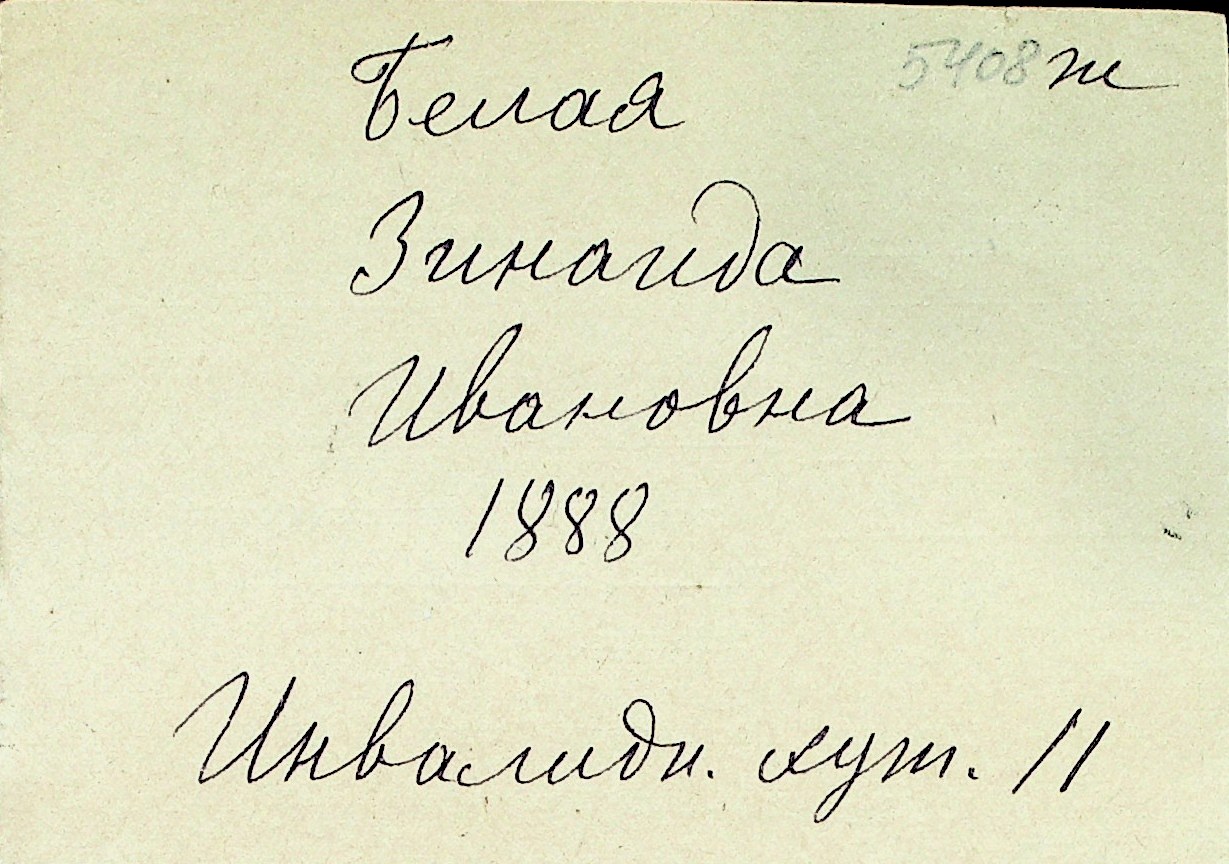 5408 т
Белая
Зинаида
Ивановна
1888
Инвалидн. хут. 11